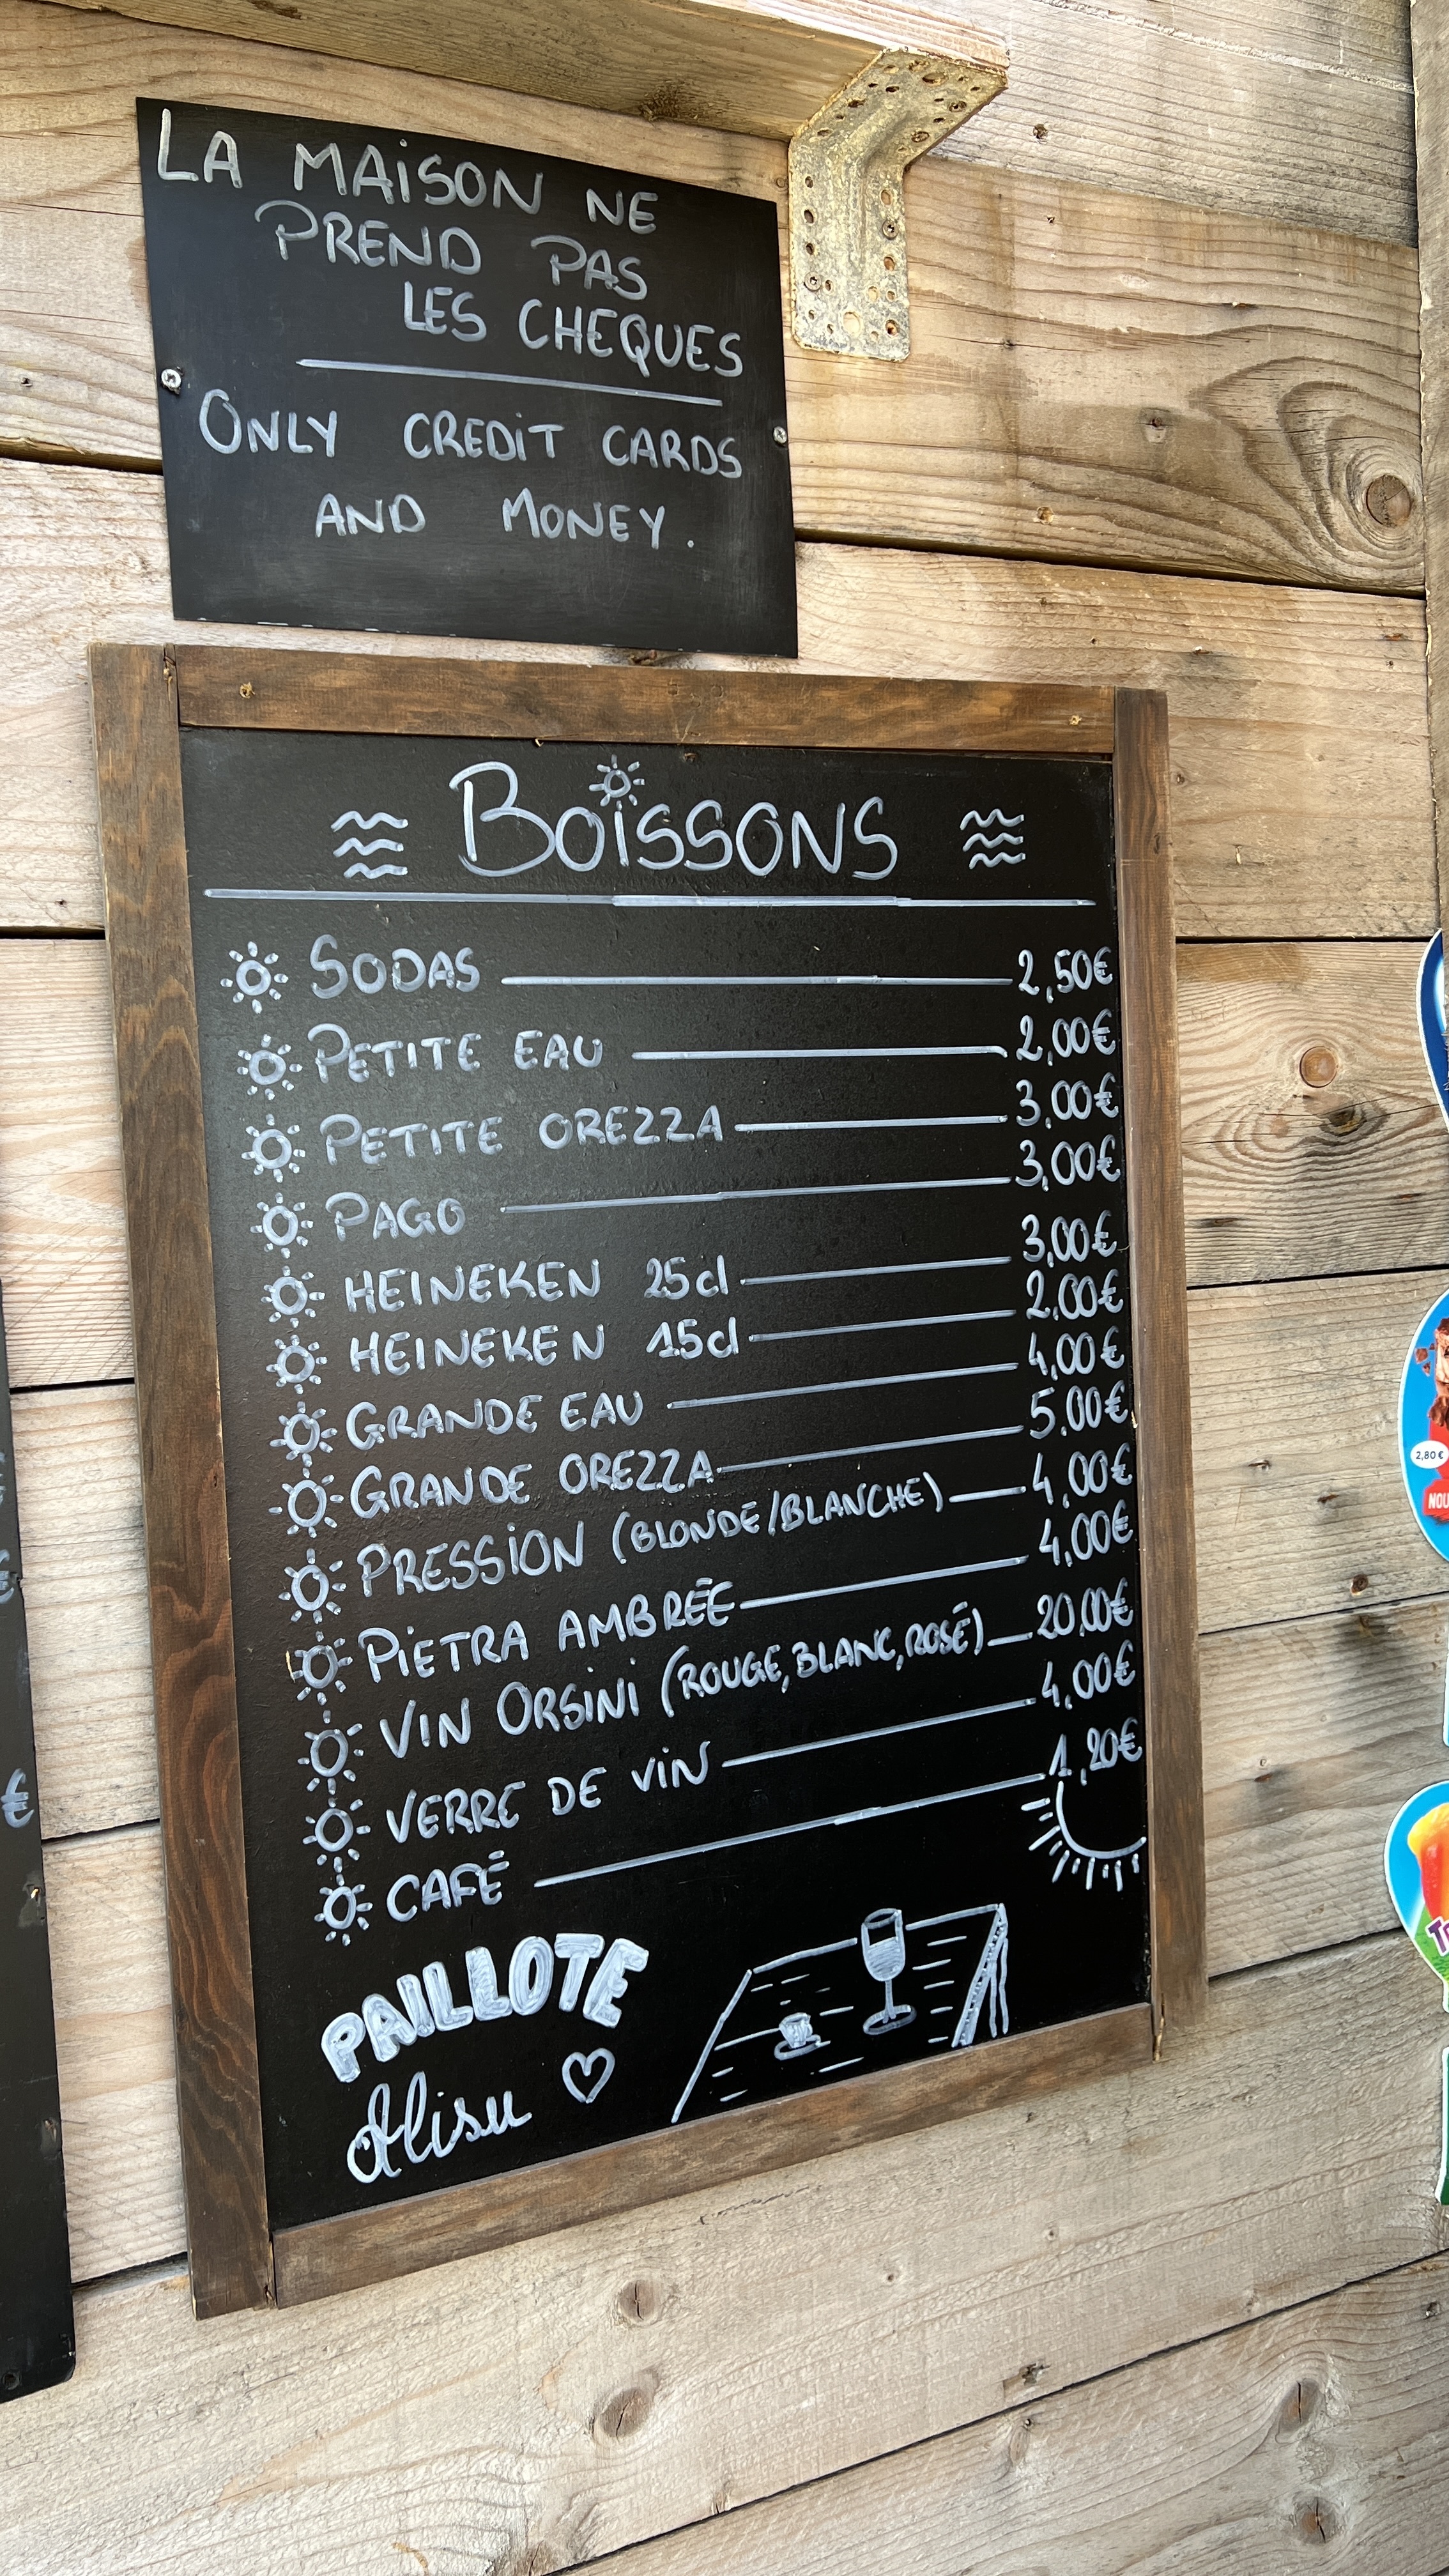 LA MAiSON NE
PREND PAS
LES CHEQUES
ONLY CREDiT CARDS
AND MONEY.
BOiSSONS
SODAS 2,50€
PETITE EAU 2,00€
PETITE OREZZA 3,00€
PAGO 3,00€
HEINEKEN 25cl 3,00€
HEINEKEN 15cl 2,00€
GRANDE EAU 4,00€
GRANDE OREZZA 5,00€
PRESSiON (BLONDE/BLANCHE) 4,00€
PiETRA AMBRÉE 4,00€
VIN ORSiNi (ROUGE, BLANC, ROSÉ) 20,00€
VERRE DE ViN 4,00€
CAFÉ 1,20€
PAILLOTE
Alisu
€
€
2,80 €